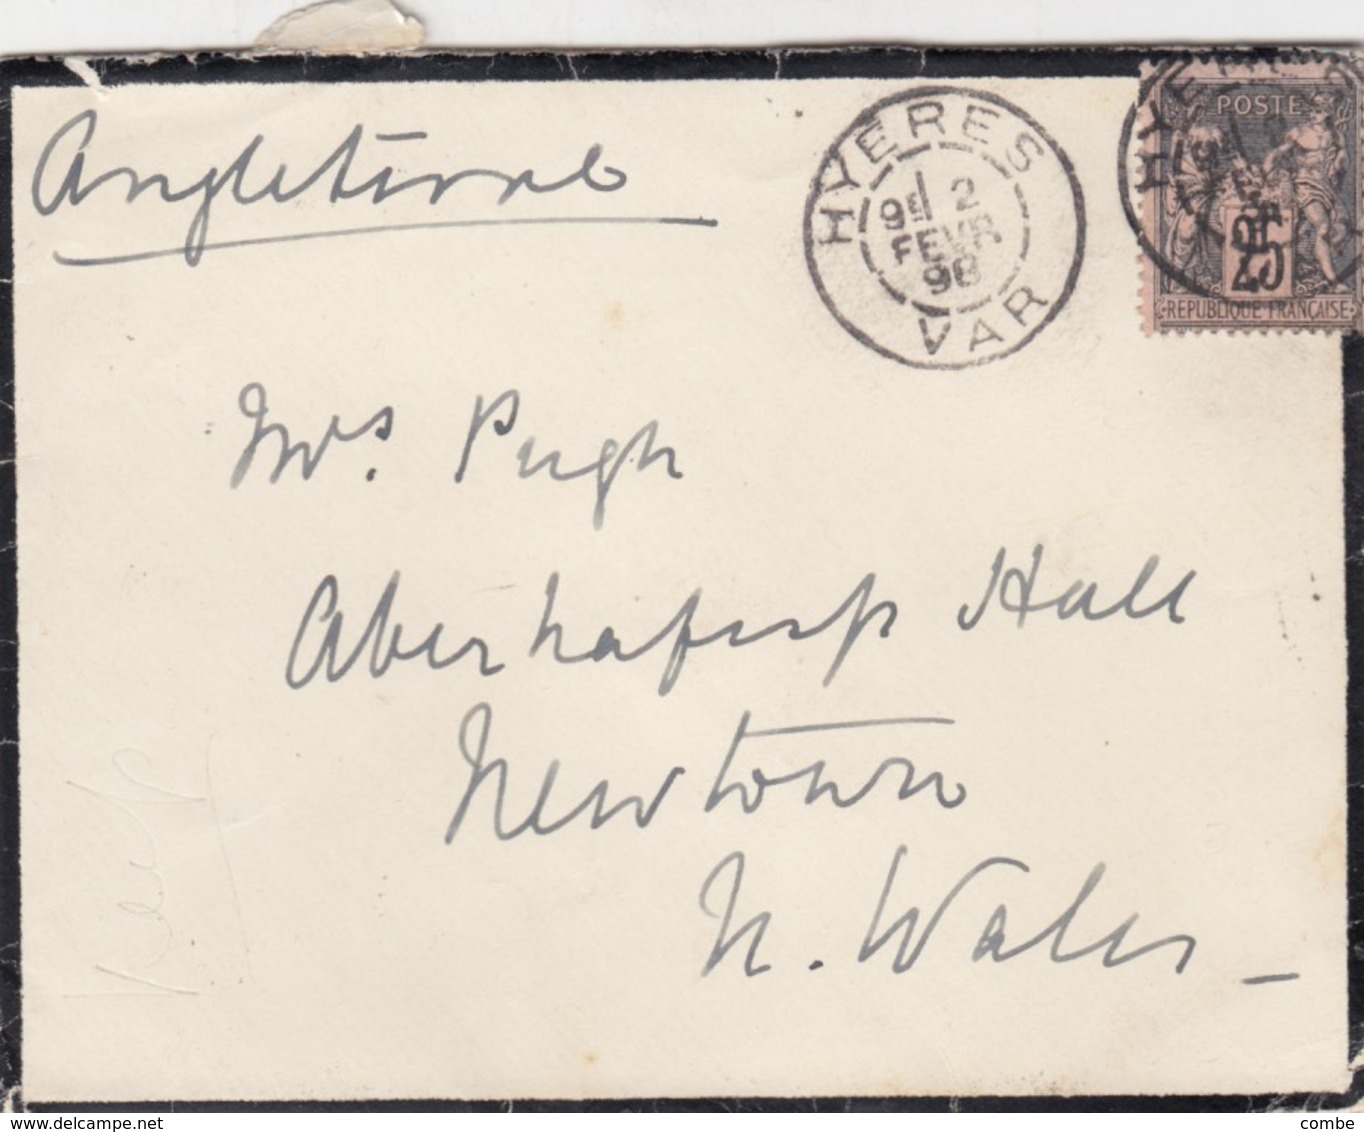 Angleterre
HYERES
9E 2
FEVR
98
VAR
POSTE
25
REPUBLIQUE FRANÇAISE
Mrs. Pugh
Aberhafesp Hall
Newtown
N. Wales
delcampe.net
combe